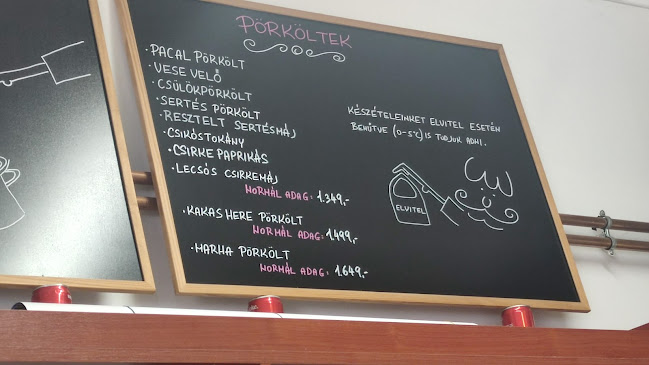 PÖRKÖLTEK
• PACAL PÖRKÖLT
• VESE VELŐ
• CSÜLÖKPÖRKÖLT
• SERTÉS PÖRKÖLT
• RESZTELT SERTÉSMÁJ
• CSIKÓSTOKÁNY
• CSIRKE PAPRIKÁS
• LECSÓS CSIRKEMÁJ
NORMÁL ADAG: 1.349,-
• KAKAS HERE PÖRKÖLT
NORMÁL ADAG: 1.499,-
• MARHA PÖRKÖLT
NORMÁL ADAG: 1.649,-
KÉSZÉTELEINKET ELVITEL ESETÉN
BEHŰTVE (0-5°C) IS TUDJUK ADNI.
ELVITEL